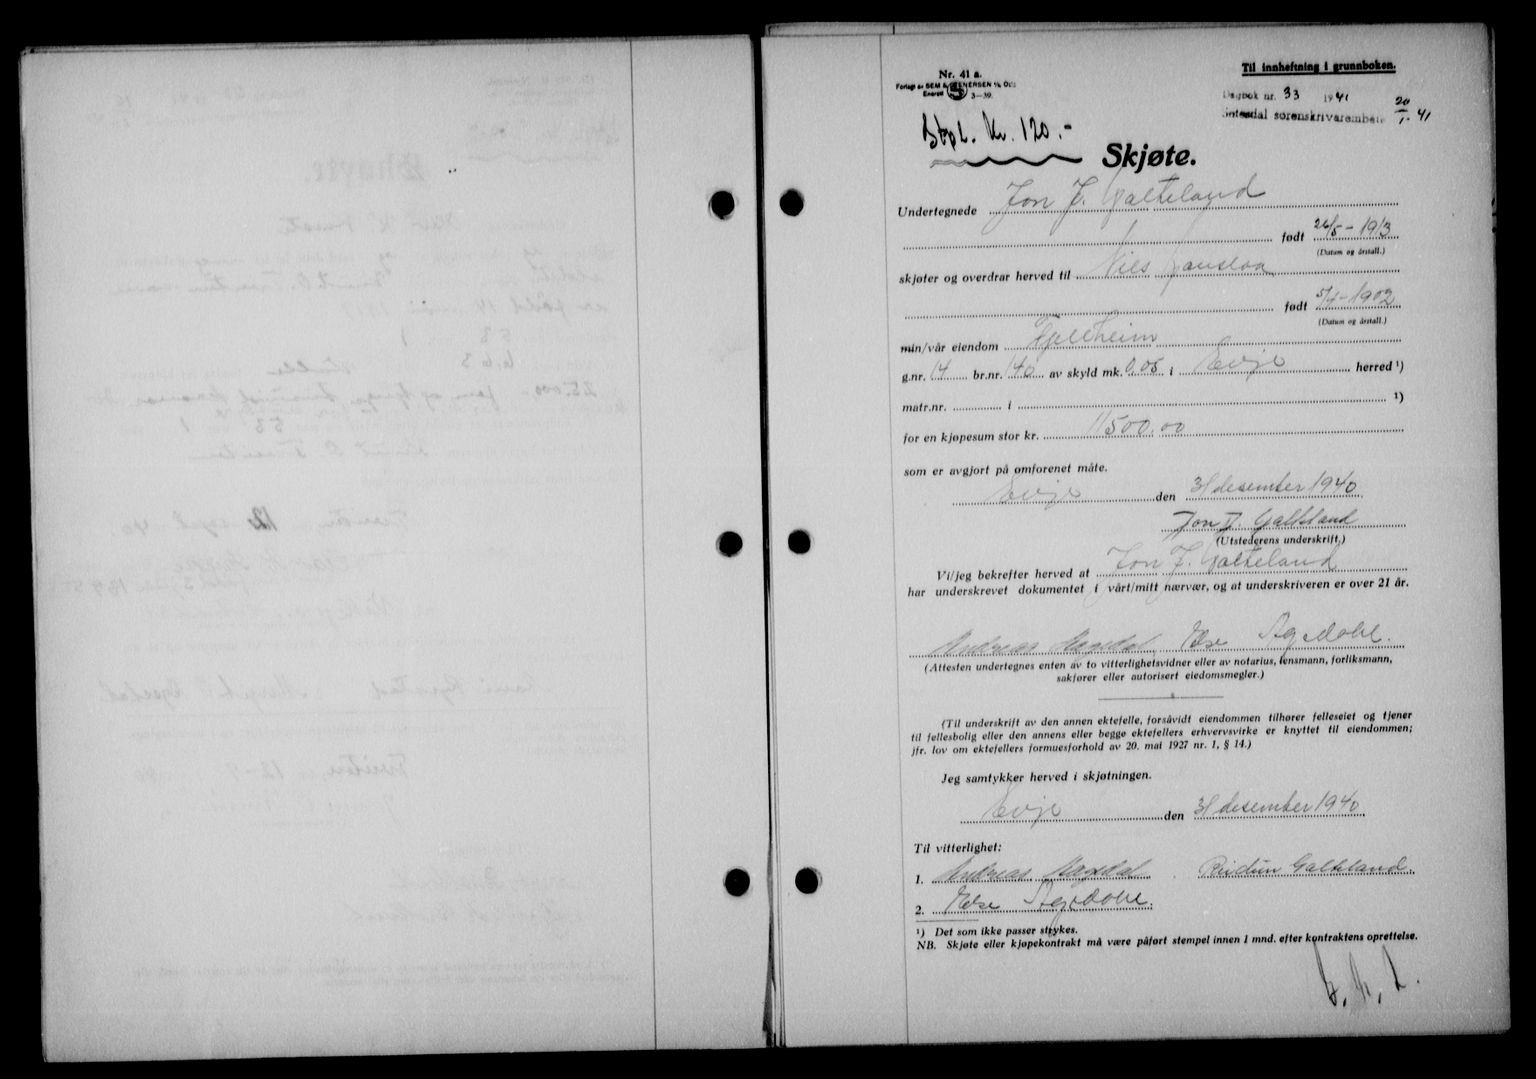 Nr. 41 a.
Forlagt av SEM & STENERSEN A/S OSLO
Enerett 3-39.
Til innheftning i grunnboken.
Dagbok nr. 33 1941
Setesdal sorenskrivarembete 20/1-41
Stpl. Kr. 120.-
Skjøte.
Undertegnede Jon J. Galteland
født 26/5-1913
(Datum og årstall.)
skjøter og overdrar herved til Nils
født 5/4-1902
(Datum og årstall.)
min/vår eiendom Fjellheim
g.nr. 14 br.nr. 140 av skyld mk. 0.05 i Evje herred ¹)
matr.nr. i ¹)
for en kjøpesum stor kr. 11500.00
som er avgjort på omforenet måte.
Evje den 31 desember 1940
Jon J. Galteland
(Utstederens underskrift.)
Vi/jeg bekrefter herved at Jon J. Galteland
har underskrevet dokumentet i vårt/mitt nærvær, og at underskriveren er over 21 år.
Andreas Aagedal Else Ag.
(Attesten undertegnes enten av to vitterlighetsvidner eller av notarius, lensmann, forliksmann,
sakfører eller autorisert eiedomsmegler.)
(Til underskrift av den annen ektefelle, forsåvidt eiendommen tilhører felleseiet og tjener
til fellesbolig eller den annens eller begge ektefellers erhvervsvirke er knyttet til eiendommen;
jfr. lov om ektefellers formuesforhold av 20. mai 1927 nr. 1, § 14.)
Jeg samtykker herved i skjøtningen.
Evje den 31 desember 1940
Til vitterlighet:
1. Andreas Aagedal Reidun Galteland.
2. Else
¹) Det som ikke passer strykes.
NB. Skjøte eller kjøpekontrakt må være påført stempel innen 1 mnd. efter kontraktens oprettelse.